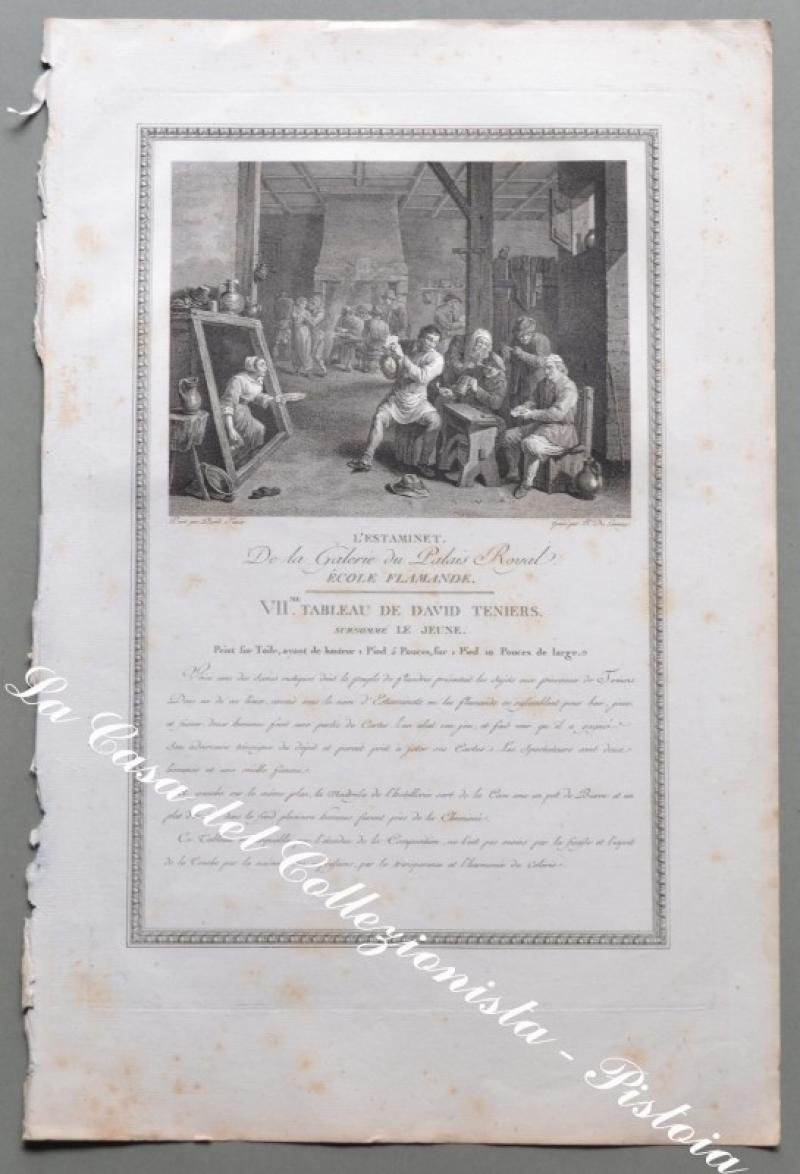 Peint par David Teniers
Gravé par
L'ESTAMINET.
De la Galerie du Palais Royal.
ÉCOLE FLAMANDE.
VII.ME TABLEAU DE DAVID TENIERS.
SURNOMMÉ LE JEUNE.
Peint sur Toile, ayant de hauteur 1 Pied 5 Pouces, sur 1 Pied 10 Pouces de large.
des Scènes rustiques dont le peuple de flandres présentoit les Sujets aux pinceaux de Teniers
Dans un de ces lieux, connus sous le nom d'Estaminets où les flamands se rassemblent pour boire, jouer,
et fumer, deux hommes font une partie de Cartes l'un abat son jeu, et fait voir qu'il a gagné
Son adversaire témoigne du dépit et paroit prêt à jeter ses Cartes. Les Spectateurs sont deux
hommes et une vieille femme.
gauche sur le même plan, la Maîtresse de l'hôtellerie sort de la Cave avec un pot de Bierre et un
plat dans le fond plusieurs hommes fument près de la Cheminée.
Ce Tableau l'étendue de la Composition, ne l'est pas moins par la finesse et l'esprit
de la Touche par la par la transparence et l'harmonie du Coloris.
La Casa del Collezionista - Pistoia